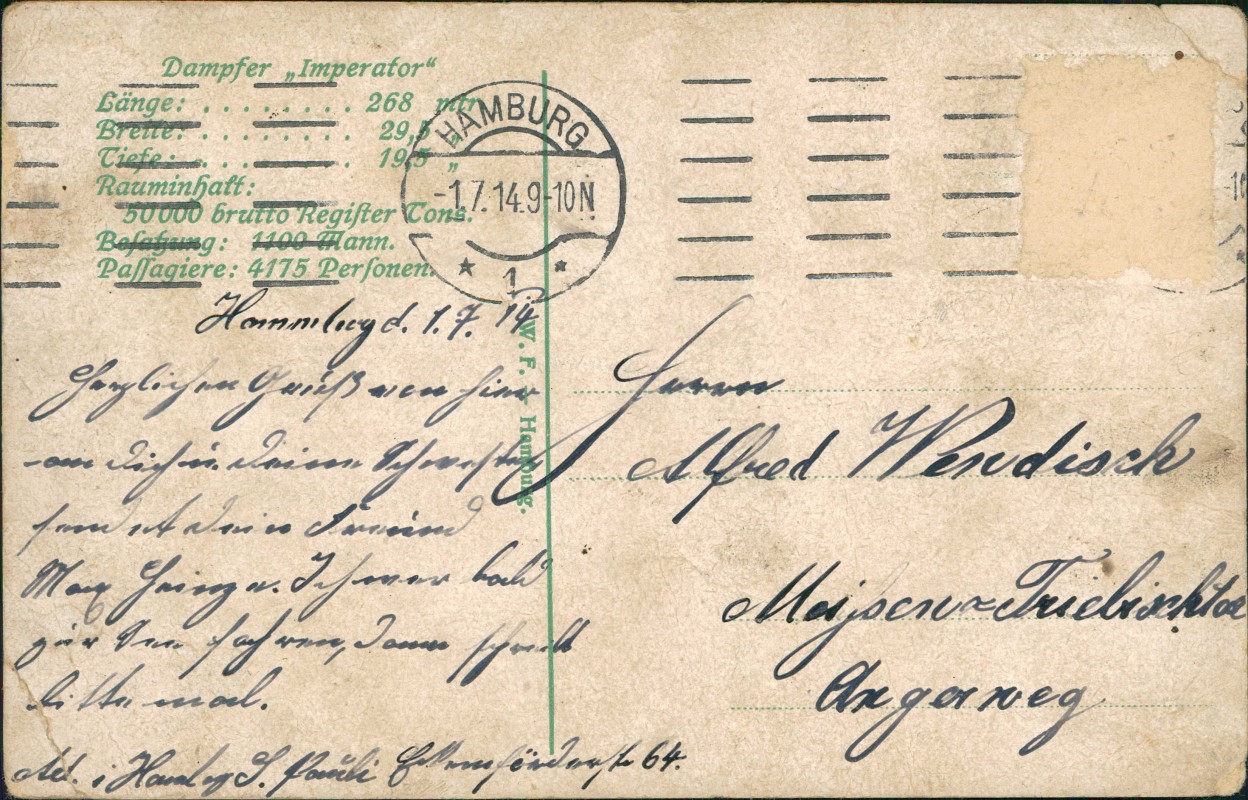 Dampfer „Imperator“
Länge: . . . . . . . . 268 mtr.
Breite: . . . . . . . . 29,5 „
Tiefe: . . . . . . . . 19,5 „
Rauminhalt:
50000 brutto Register Tons.
Besatzung: 1100 Mann.
Passagiere: 4175 Personen.
HAMBURG
-1.7.14.9-10N
* 1 *
W. F. Hamburg.
Hammbug d. 1. 7. 14
Herzlichen Gruß von hier
an dich u. deine Schwester
sendet dein Freund
Max Heinze. Ich wer bald
zur See fahren, dann schreib
bitte mal.
i Hambg S. Pauli Eckernförderstr 64.
Herrn
Alfred Wendisch
Meißen-Triebischtal
Angerweg